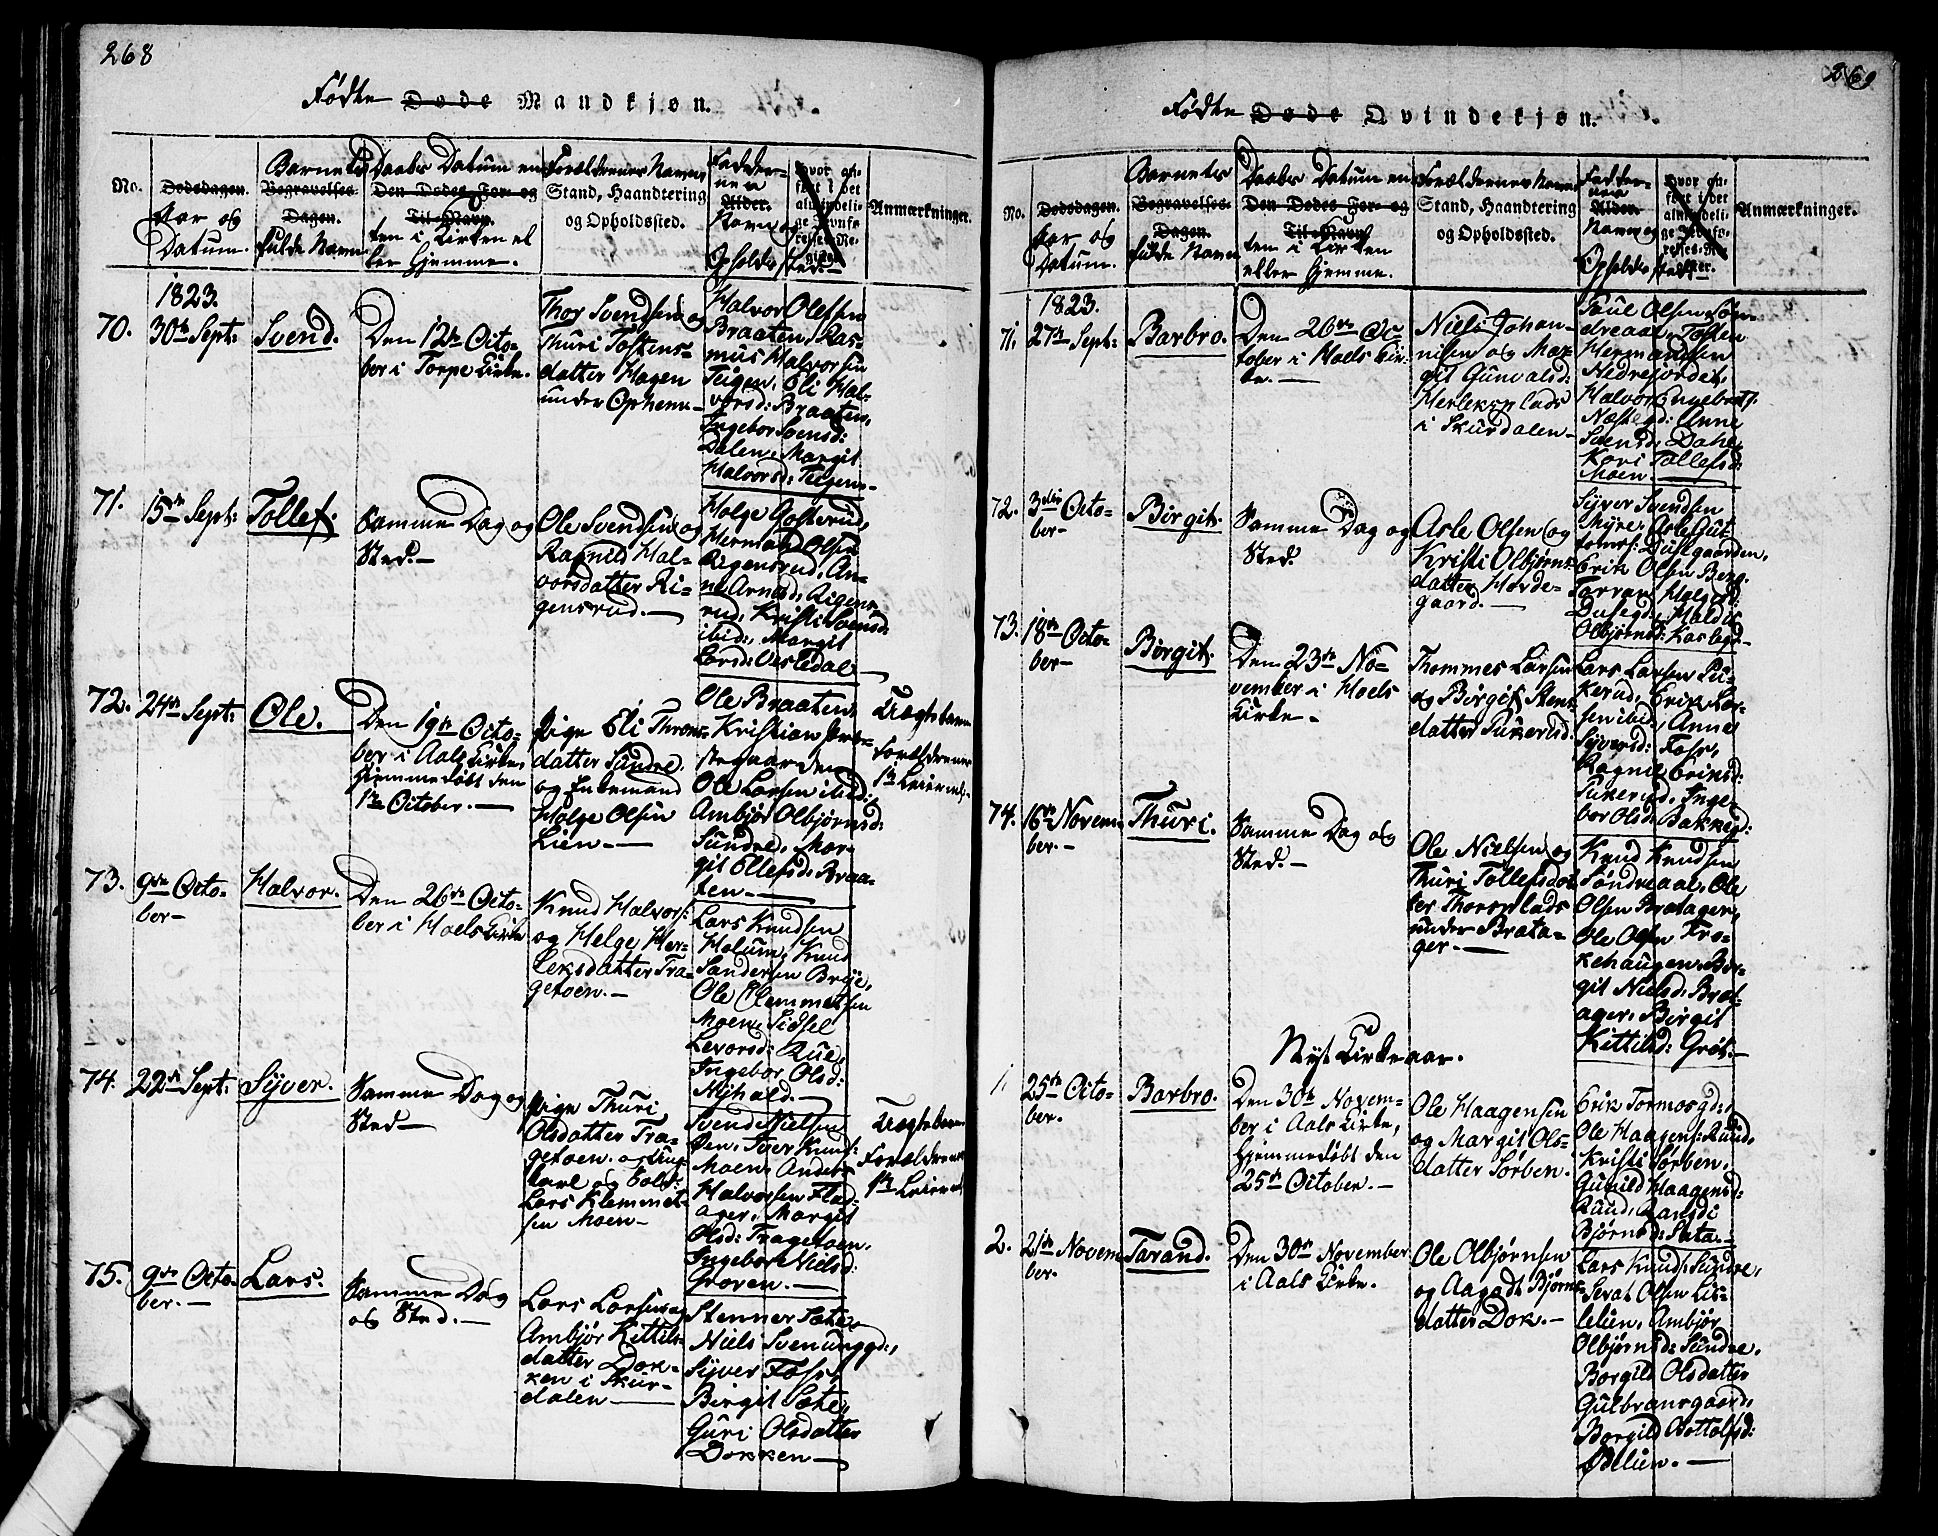 268
Fødte Døde Mandkjøn.
No.
Dødsdagen.
Aar og
Datum.
Barnets
Begravelses-
Dagen.
fulde Navn
Daabs Datum en
Den Dødes For- og
Til-Navn.
ten i Kirken el
ler Hjemme.
Forældrenes Navne
Stand, Haandtering
og Opholdssted.
Fadder-
nes
Alder.
Navn og
Opholdssted.
Hvor an-
ført i det
almindeli-
ge Jevnfø-
relses-Re-
gister.
Anmærkninger.
1823.
70.
30te Sept:
Svend.
Den 12te Octo-
ber i Torpe Kirke.
Thor Svendsen og
Thuri Tostens-
datter Hagen
under Ophem -
Halvor Olesen
Braaten, Ras-
mus Halvorsen
Teigen, Eli Hal-
vorsd: Braaten,
Ingebor Svensd:
Dalen, Margit
Halvorsd: Teigen -
71.
15de Sept:
Tollef.
Samme Dag og
Sted. -
Ole Svendsen og
Ragnild Hal-
vorsdatter Ri-
gensrud. -
Helge Golberud,
Herman Olsen
Rigensrud, An-
ne Arnesd: Rigens-
rud, Kristi Svensd:
ibid:, Margit
Larsd: Vesledal -
72.
24de Sept:
Ole.
Den 19de Octo-
ber i Aals Kirke,
Hjemmedøbt den
1ste October. -
Pige Eli Thrond-
datter Sundre,
og Enkemand
Helge Olsen
Lien -
Ole Braaten,
Kristian Præ-
stegaarden
Ole Larsen ibid:
Ambjør Olbjørnsd:
Sundre, Mar-
git Ellefsd: Braa-
ten -
Uægtebarn
Forældrenes
1ste Leierml.
73.
9de Octo-
ber -
Halvor.
Den 26de Octo-
ber i Hoels Kirke
Knud Halvors:
og Helge Her-
leksdatter Tra-
getoen. -
Lars Knudsen
Holum, Knud
Sandersen Brye,
Ole Clemmetsen
Moen, Sidsel
Levorsd: Rue,
Ingebor Olsd:
Myhald. -
74.
22de Sept:
Syver.
Samme Dag og
Sted -
Pige Thuri
Olsdatter Tra-
getoen. og Ung-
karl og Sold:
Lars Klemmet-
sen Moen -
Svend Nielsen
Øen, Iver Knuds:
Moen, Anders
Halvorsen Flad-
ager, Margit
Olsd: Tragetoen,
Ingebor Nielsd:
Groven. -
Uægtebarn
Forældrenes
1ste Leierm
75.
9de Octo-
ber. -
Lars.
Samme Dag
og Sted. -
Lars Larsen og
Ambjør Kittils-
datter Dok-
ken i Skur-
dalen -
Stenner Sæte,
Niels Svenunggd:,
Syver Foss,
Birgit Sæte,
Guri Olsdatter
Dokken -
269
Fødte Døde Qvindekjøn.
No.
Dødsdagen.
Aar og
Datum.
Barnets
Begravelses-
Dagen.
fulde Navn
Daabs Datum en
Den Dødes For- og
Til-Navn
ten i Kirken
eller Hjemme.
Forældrenes Navne
Stand, Haandtering
og Opholdssted.
Fadder-
nes
Alder.
Navn og
Opholdssted.
Hvor an-
ført i det
almindeli-
ge Jevnfø-
relses-Re-
gister.
Anmærkninger.
1823.
71.
27de Sept:
Barbro.
Den 26de Oc-
tober i Hoels Kir-
ke. -
Niels Johan-
nisen og Mar-
git Gunvalsd:
Herleksplads
i Skurdalen -
Poul Olsen Søn-
dreaal, Tosten
Hermandsen
Nedrejordet,
Halvor Engebrets:
Næsegd: Anne
Svensd: Dahle,
Kari Tollefsd:
Moen. -
72.
3die Octo-
ber -
Birgit.
Samme Dag og
Sted.
Asle Olsen og
Kristi Olbjørns-
datter Horde-
gaard. -
Syver Svendsen
Myre, Asle Gut-
torms: Dusegaarden,
Erik Olsen Berg,
Tarran Helgesd:
Dusegd:, Maldis
Olbjørnsd: Kaslegd -
73.
18de Octo-
ber -
Birgit.
Den 23de No-
vember i Hoels
Kirke -
Thommes Larsen
og Birgit Stens-
datter Pukerud.
Lars Larsen Pu-
kerud, Erik Lar-
sen ibid:, Anne
Syversd: Foss,
Ragnil Eriksd:
Pukerud, Inge-
bor Olsd: Bakkegd:
74.
16de Novem-
ber. -
Thuri.
Samme Dag og
Sted. -
Ole Nielsen og
Thuri Tollefsdat-
ter Thorsplads
under Brata-
ger. -
Knud Knudsen
Søndreaal, Ole
Olsen Bratager,
Ole Olsen Tro-
kehaugen, Bir-
git Nielsd: Brat-
ager, Birgit
Kittilsd: Grøt. -
Nyt Kirkeaar.
1.
25de Octo-
ber.
Barbro.
Den 30te Novem-
ber i Aals Kirke,
Hjemmedøbt den
25de October. -
Ole Haagensen
og Margit Ols-
datter Sørben.
Erik Tormosgd:,
Ole Haagens: Ruud,
Kristi Sørben,
Gunild Haagensd:
Ruud, Ransdi
Bjørnsd: Sata. -
2.
21de Novem-
ber.
Tarand.
Den 30te November
i Aals Kirke.
Ole Olbjørnsen
og Aagodt Bjørns-
datter Dok. -
Lars Knuds: Sundre,
Sevat Olsen Lis-
lelien, Ambjør
Olbjørnsd: Sundre,
Borgild Olsdatter
Gulbransgaard,
Borgild Bottolfsd:
Ødelien. -